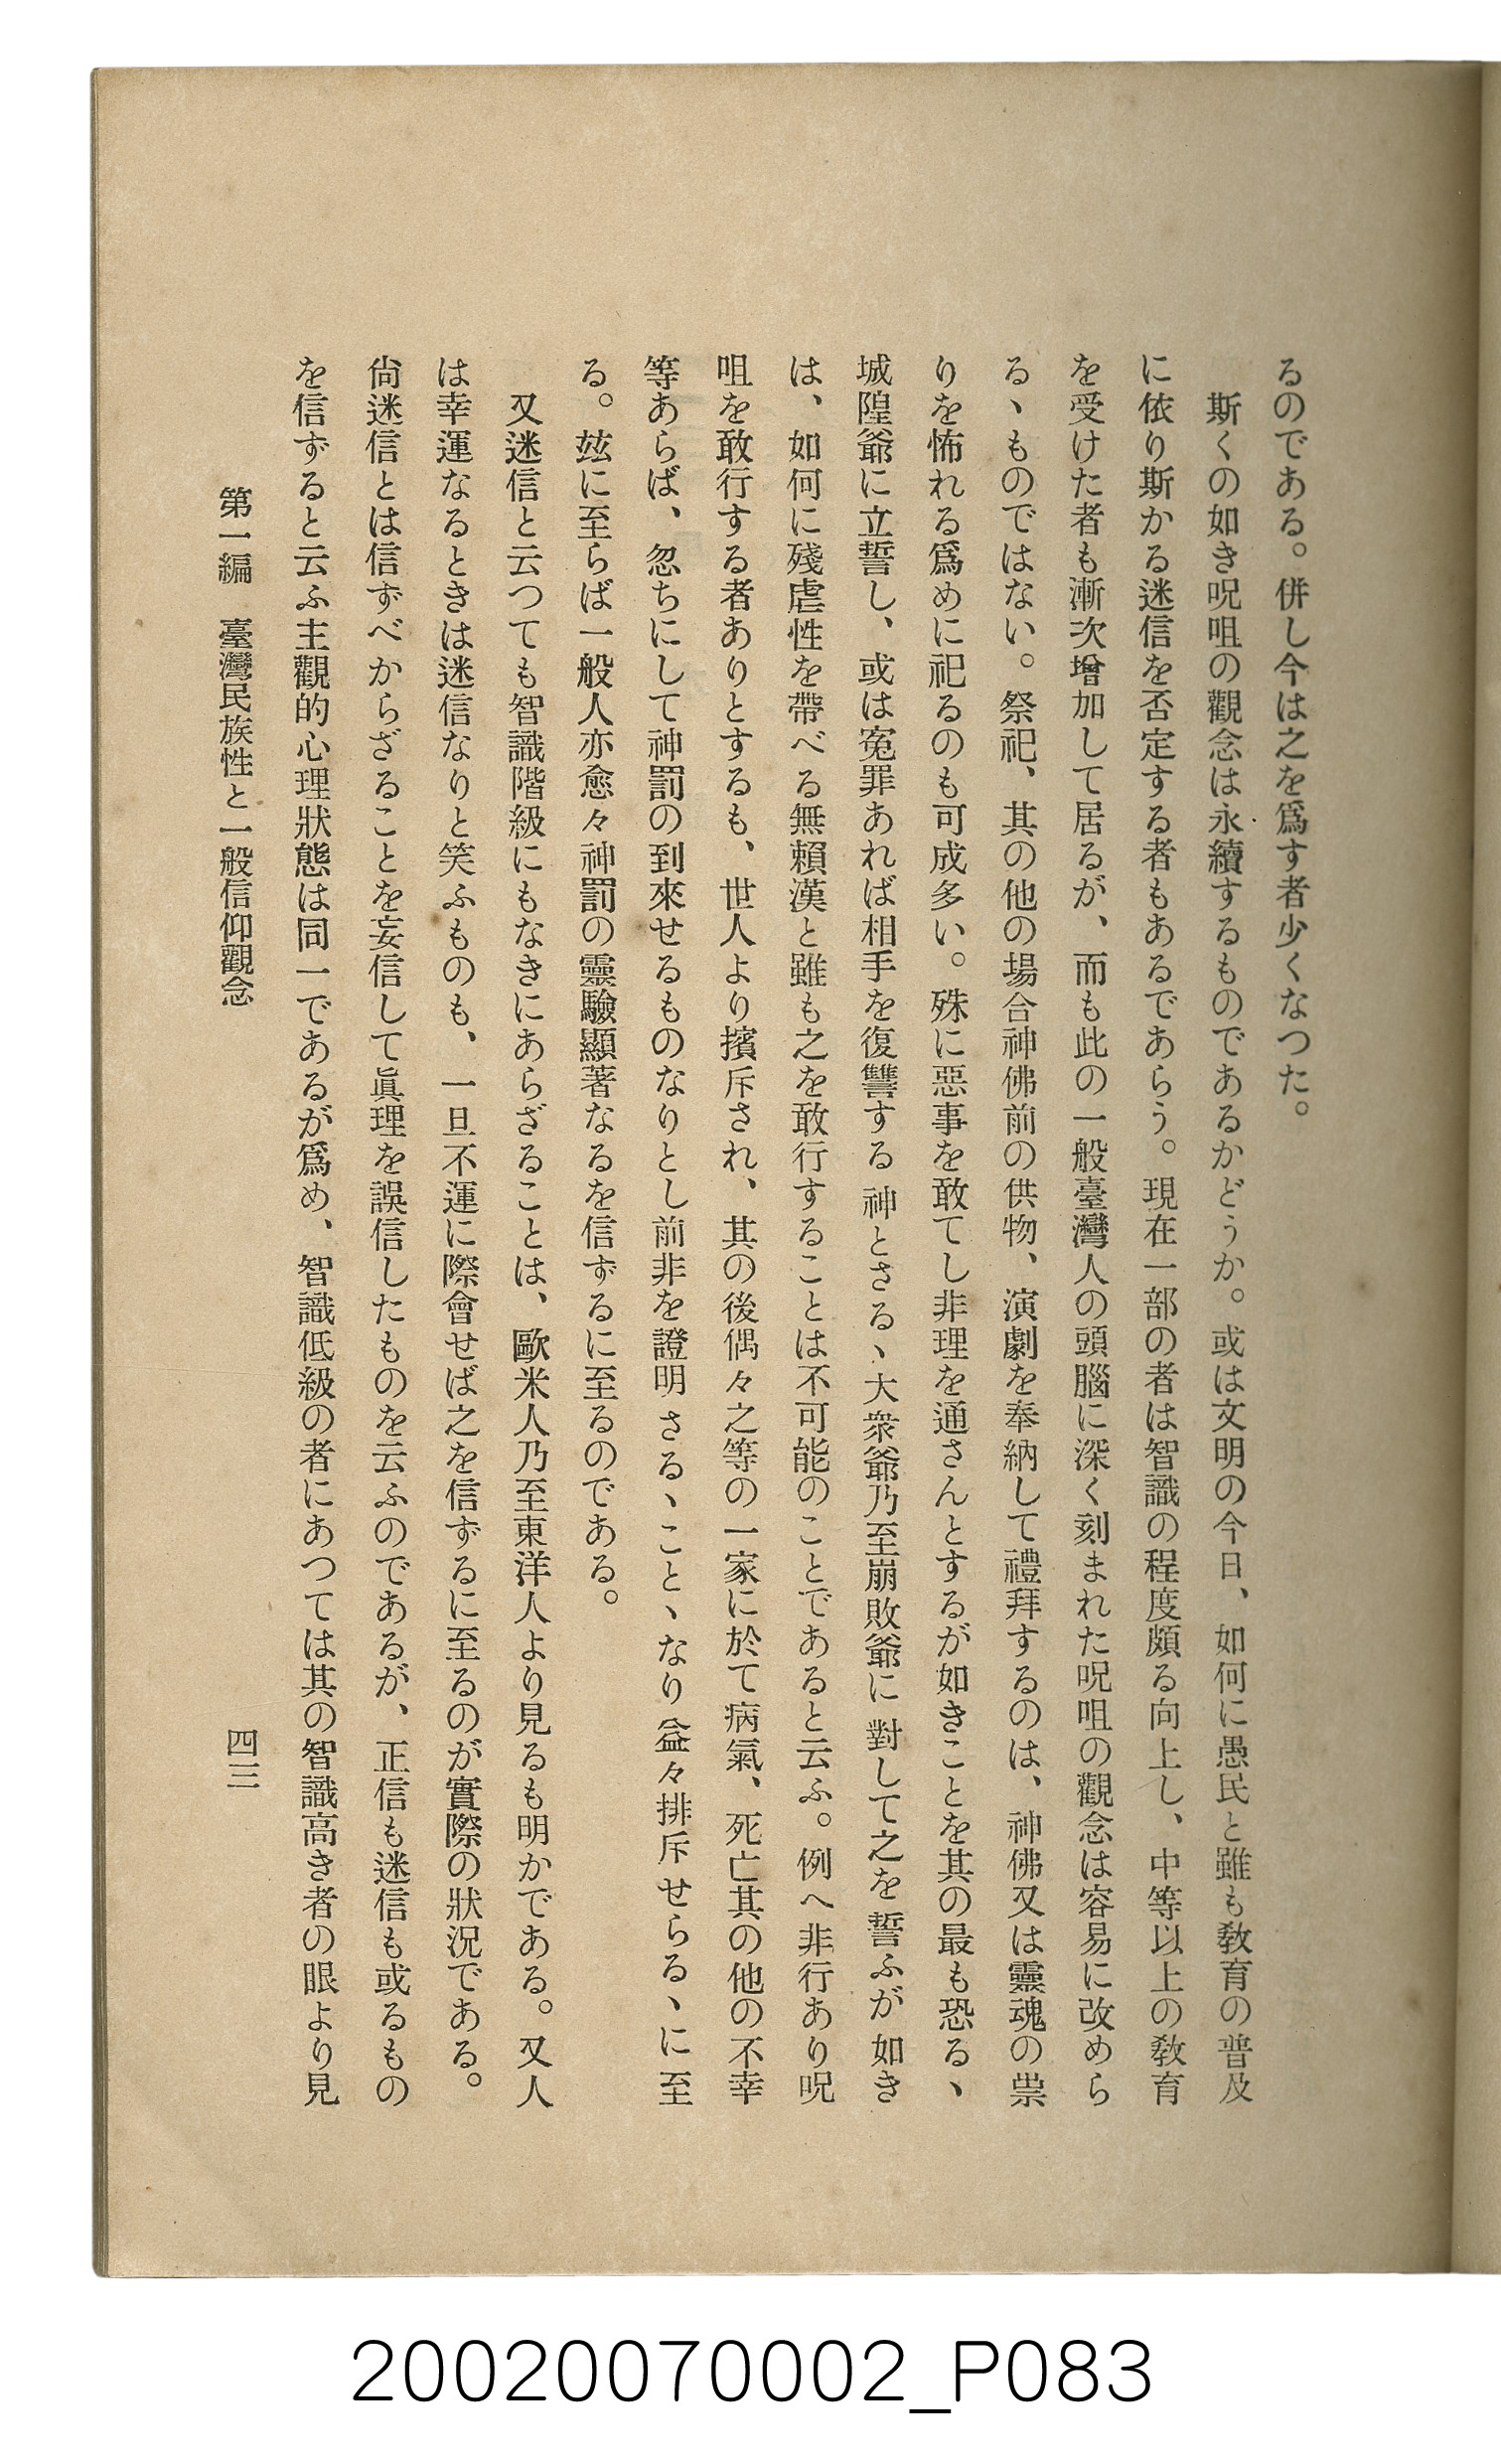 るのである。併し今は之を爲す者少くなつた。
斯くの如き呪咀の觀念は永續するものであるかどうか。或は文明の今日、如何に愚民と雖も敎育の普及
に依り斯かる迷信を否定する者もあるであらう。現在一部の者は智識の程度頗る向上し、中等以上の敎育
を受けた者も漸次增加して居るが、而も此の一般臺灣人の頭腦に深く刻まれた呪咀の觀念は容易に改めら
るヽものではない。祭祀、其の他の場合神佛前の供物、演劇を奉納して禮拜するのは、神佛又は靈魂の祟
りを怖れる爲めに祀るのも可成多い。殊に惡事を敢てし非理を通さんとするが如きことを其の最も恐るヽ
城隍爺に立誓し、或は寃罪あれば相手を復讐する神とさるヽ大衆爺乃至崩敗爺に對して之を誓ふが如き
は、如何に殘虐性を帶べる無賴漢と雖も之を敢行することは不可能のことであると云ふ。例へ非行あり呪
咀を敢行する者ありとするも、世人より擯斥され、其の後偶々之等の一家に於て病氣、死亡其の他の不幸
等あらば、忽ちにして神罰の到來せるものなりとし前非を證明さるヽことヽなり益々排斥せらるヽに至
る。玆に至らば一般人亦愈々神罰の靈驗顯著なるを信ずるに至るのである。
又迷信と云つても智識階級にもなきにあらざることは、歐米人乃至東洋人より見るも明かである。又人
は幸運なるときは迷信なりと笑ふものも、一旦不運に際會せば之を信ずるに至るのが實際の狀況である。
尙迷信とは信ずべからざることを妄信して眞理を誤信したものを云ふのであるが、正信も迷信も或るもの
を信ずると云ふ主觀的心理狀態は同一であるが爲め、智識低級の者にあつては其の智識高き者の眼より見
第一編　臺灣民族性と一般信仰觀念
四三
20020070002_P083